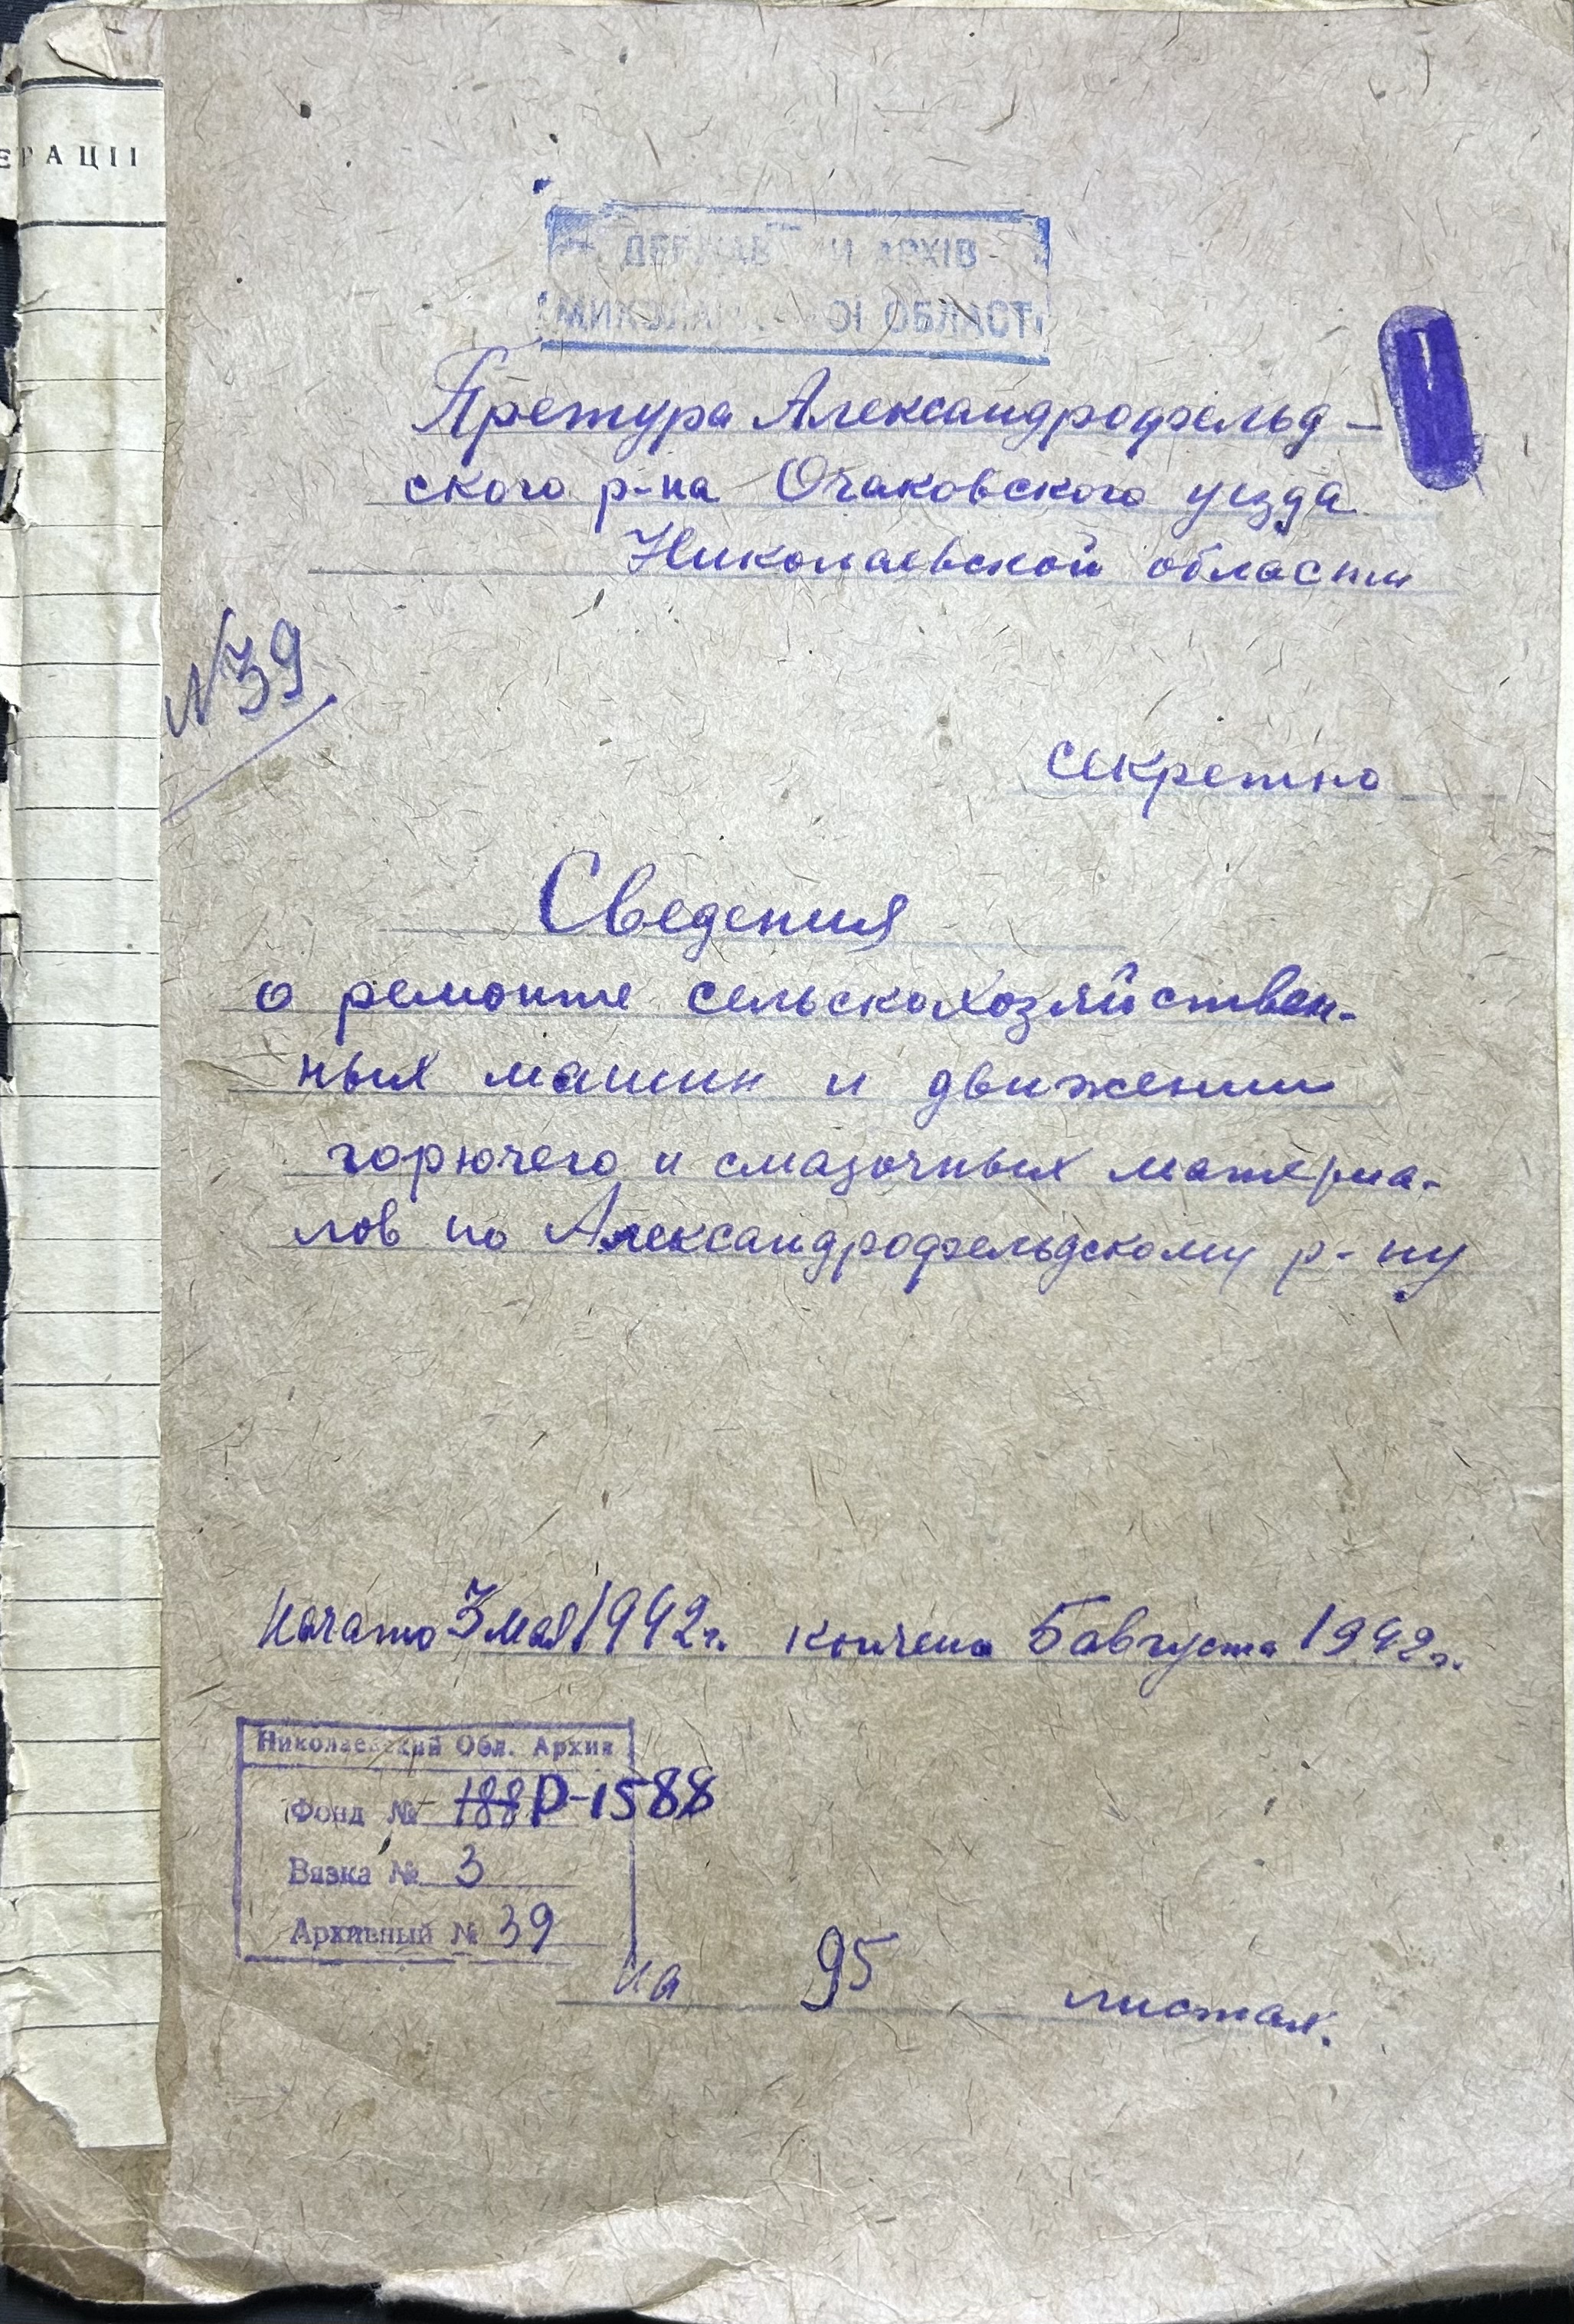 ЕРАЦІІ
ДЕРЖАВНИЙ АРХІВ
МИКОЛАЇВСЬКОЇ ОБЛАСТІ
Претура Александрофельд-
ского р-на Очаковского уезда
Николаевской области
№39
секретно
Сведения
о ремонте сельскохозяйствен-
ных машин и движении
горючего и смазочных материа-
лов по Александрофельдскому р-ну
Начато 3 мая 1942г. кончено 5 августа 1942г.
Николаевский Обл. Архив
Фонд № 188 Р-1588
Вязка № 3
Архивный № 39
на 95 листах.